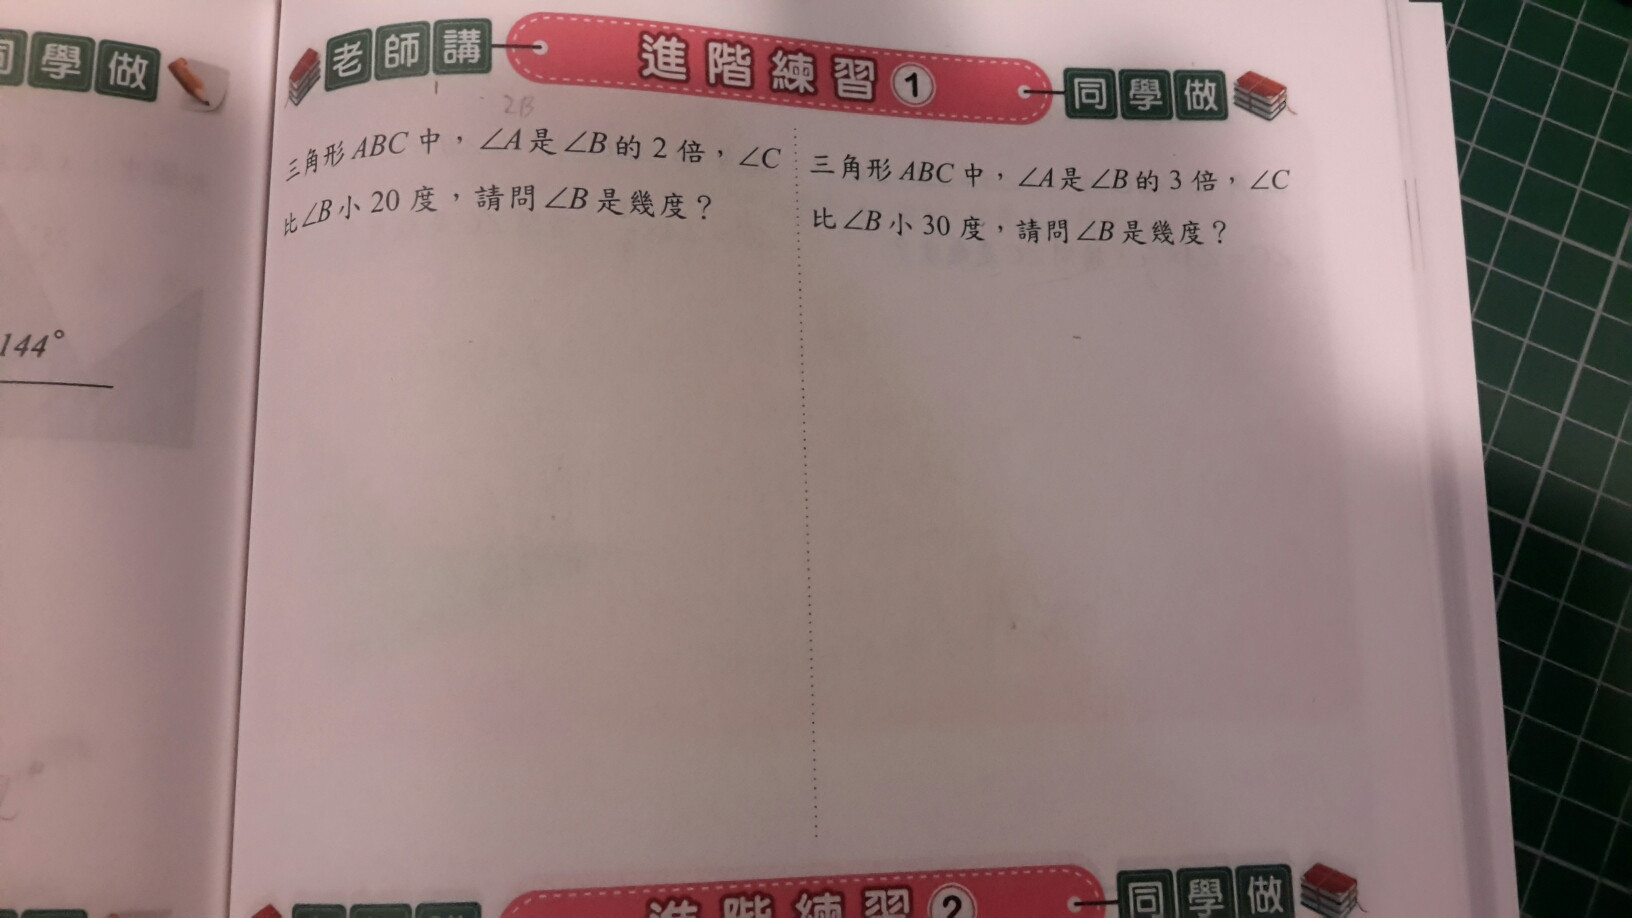 同學做
144°
老師講 進階練習① 同學做
2B
三角形ABC中，∠A是∠B的2倍，∠C
比∠B小20度，請問∠B是幾度？
三角形ABC中，∠A是∠B的3倍，∠C
比∠B小30度，請問∠B是幾度？
進階練習② 同學做